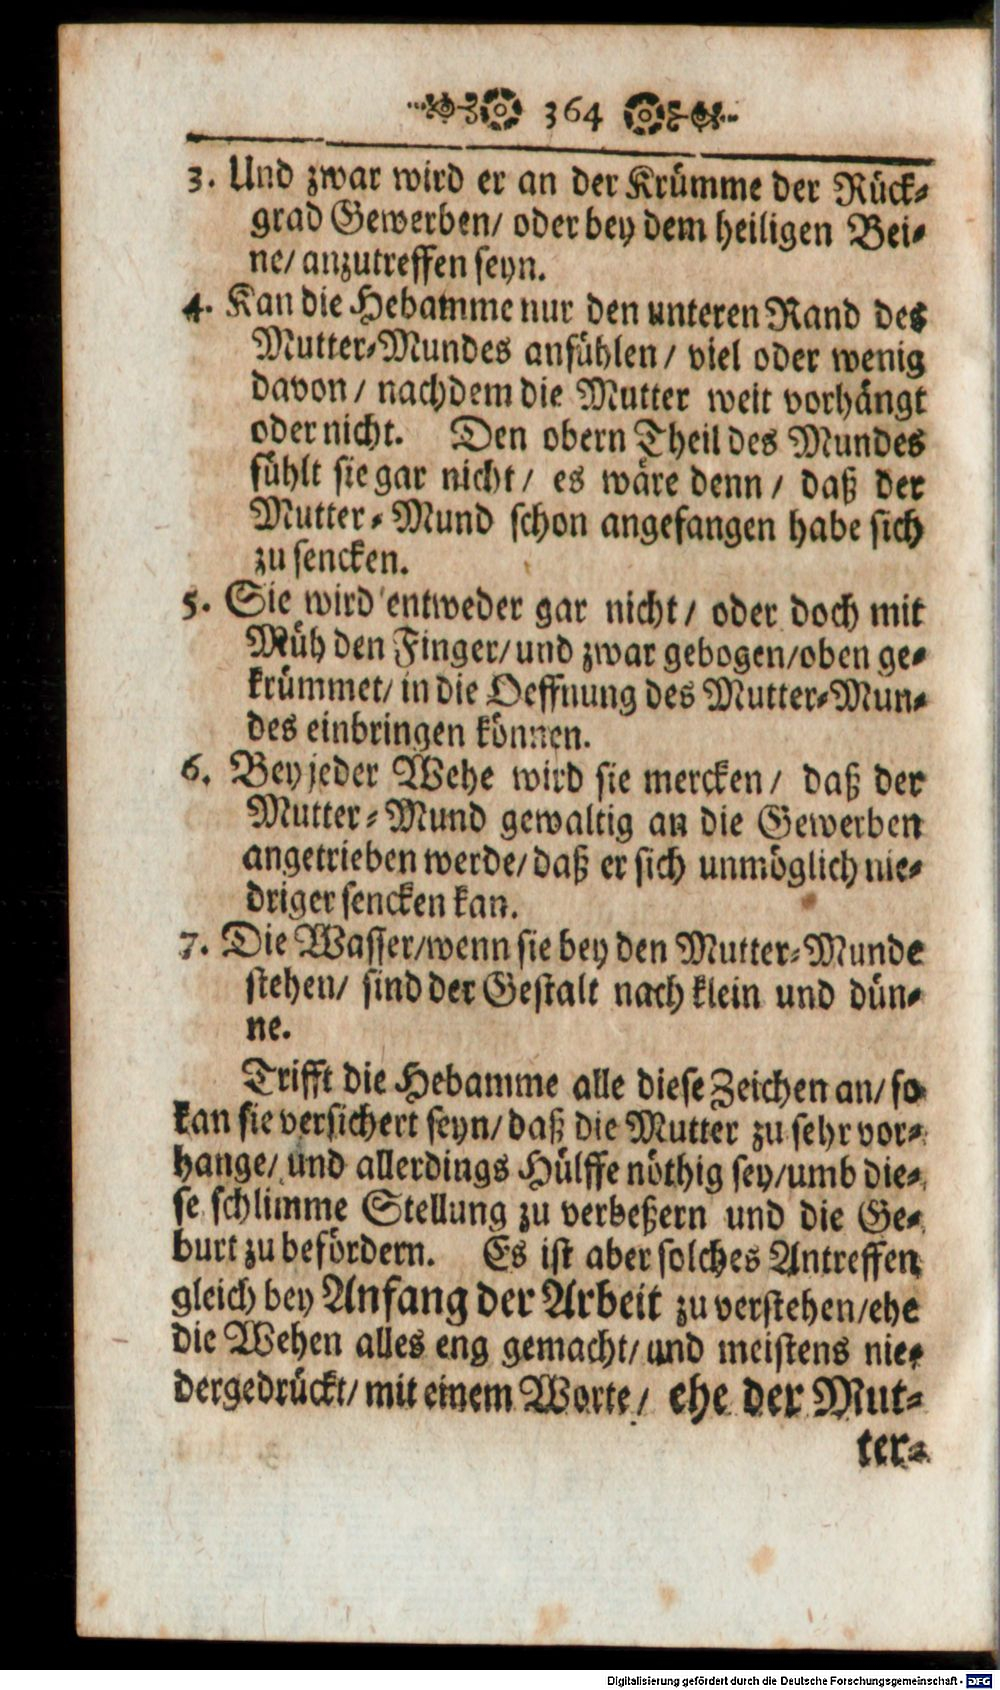 364
3. Und zwar wird er an der Krümme der Rück-
grad Gewerben/ oder bey dem heiligen Bei-
ne/ anzutreffen seyn.
4. Kan die Hebamme nur den unteren Rand des
Mutter-Mundes anfühlen/ viel oder wenig
davon/ nachdem die Mutter weit vorhängt
oder nicht. Den obern Theil des Mundes
fühlt sie gar nicht/ es wäre denn/ daß der
Mutter-Mund schon angefangen habe sich
zu sencken.
5. Sie wird entweder gar nicht/ oder doch mit
Müh den Finger/ und zwar gebogen/ oben ge-
krümmet/ in die Oeffnung des Mutter-Mun-
des einbringen können.
6. Bey jeder Wehe wird sie mercken/ daß der
Mutter-Mund gewaltig an die Gewerben
angetrieben werde/ daß er sich unmöglich nie-
driger sencken kan.
7. Die Wasser/ wenn sie bey den Mutter-Munde
stehen/ sind der Gestalt nach klein und dün-
ne.
Trifft die Hebamme alle diese Zeichen an/ so
kan sie versichert seyn/ daß die Mutter zu sehr vor-
hange/ und allerdings Hülffe nöthig sey/ umb die-
se schlimme Stellung zu verbeßern und die Ge-
burt zu befördern. Es ist aber solches Antreffen
gleich bey Anfang der Arbeit zu verstehen/ ehe
die Wehen alles eng gemacht/ und meistens nie-
dergedrückt/ mit einem Worte/ ehe der Mut-
ter-
Digitalisierung gefördert durch die Deutsche Forschungsgemeinschaft - DFG